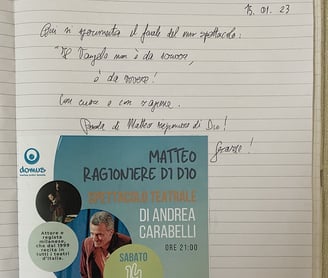 15.01.23
Qui si sperimenta il finale del mio spettacolo:
"Il Vangelo non è da
è da
Con cuore e con ragione.
Parola di Matteo ragioniere di Dio!
Grazie!
domus
MATTEO
RAGIONIERE DI DIO
SPETTACOLO TEATRALE
DI ANDREA
CARABELLI
ORE 21:00
Attore e
regista
milanese,
che dal 1998
recita in
tutti i teatri
d'Italia.
SABATO
14